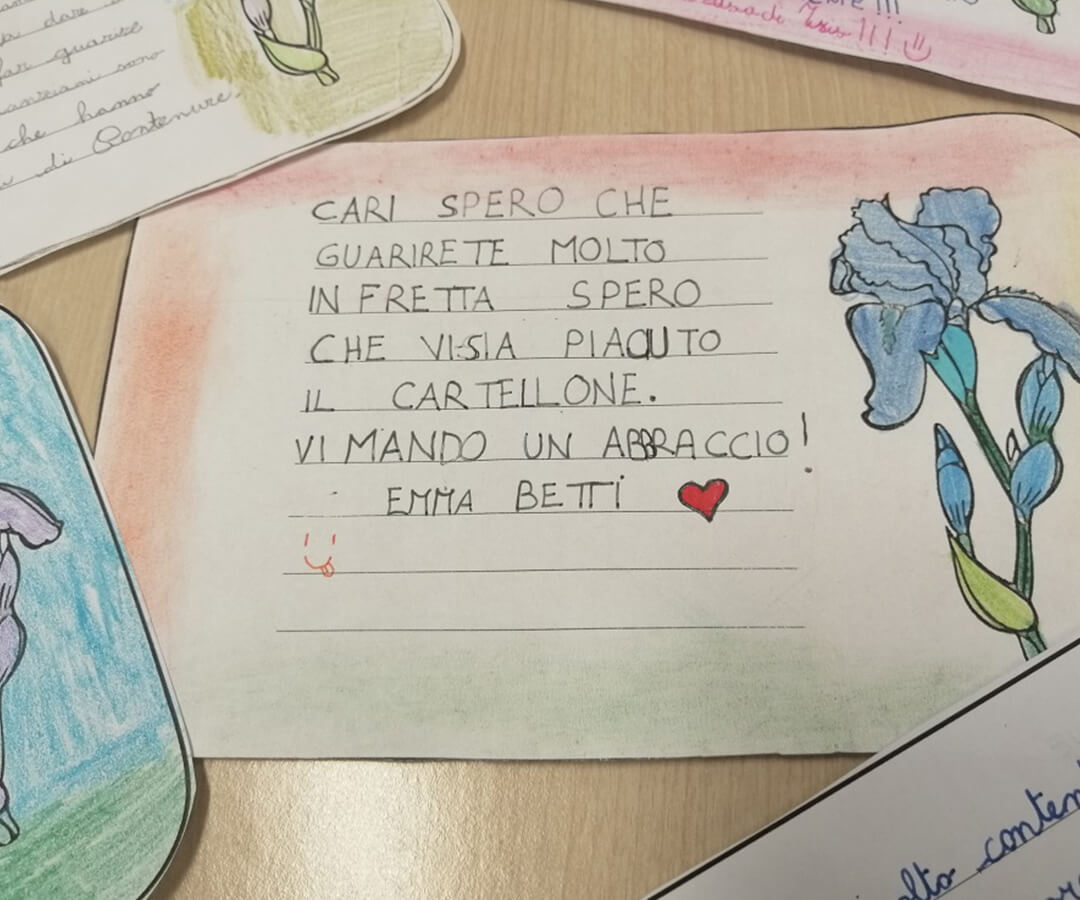 a dare
far guarire
anziani sono
che hanno
di Pontenure.
!!!
casa di Iris !!!
CARI SPERO CHE
GUARIRETE MOLTO
IN FRETTA SPERO
CHE VI SIA PIACIUTO
IL CARTELLONE.
VI MANDO UN ABBRACCIO!
EMMA BETTI
molto conten